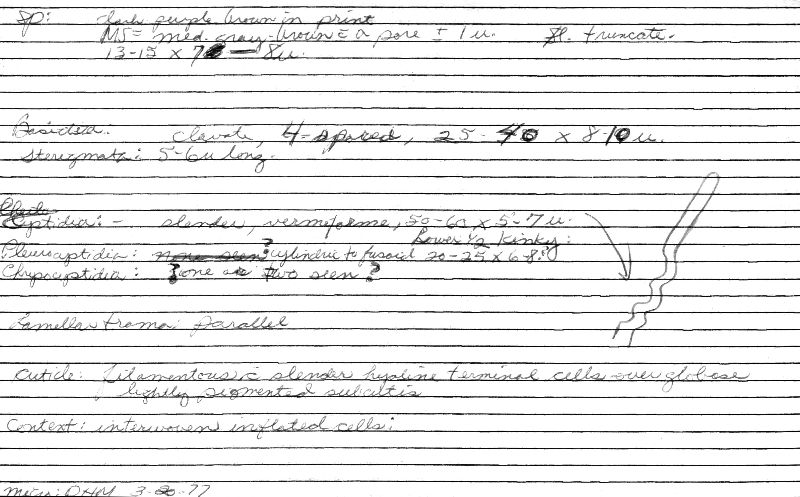 Sp: dark purple brown in print
MS= med. gray-brown c̄ a pore ± 1 u. Sl. truncate.
13-15 x 7 - 8u.
Basidia: clavate, 4-spored, 25-40 x 8-10 u.
Sterigmata: 5-6u long.
Cheilo
Cystidia: - slender, vermiforme, 50-60 x 5-7 u.
Lower 1/2 kinky:
Pleurocystidia: none seen ? cylindric to fusoid 20-25 x 6-8?
Chrysocystidia: ? one or two seen ?
Lamellar trama: parallel
Cuticle: filamentous c̄ slender hyaline terminal cells over globose
lightly pigmented subcutis
Context: interwoven inflated cells:
Micro: DHM 3- -77